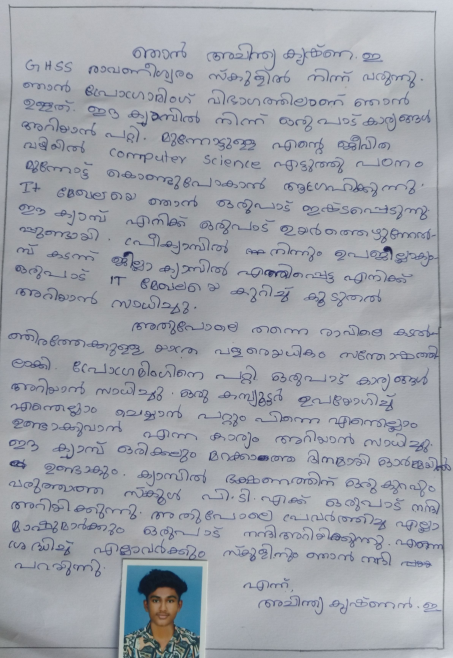 ഞാൻ അചിന്ത്യ കൃഷ്ണ. ഇ
GHSS രാവണീശ്വരം സ്കൂളിൽ നിന്ന് വരുന്നു.
ഞാൻ പ്രോഗ്രാമിംഗ് വിഭാഗത്തിലാണ് ഞാൻ
ഉള്ളത്. ഈ ക്യാമ്പിൽ നിന്ന് ഒരുപാട് കാര്യങ്ങൾ
അറിയാൻ പറ്റി. മുന്നോട്ടുള്ള എന്റെ ജീവിത
വഴിയിൽ computer science എടുത്തു പഠനം
മുന്നോട്ട് കൊണ്ടുപോകാൻ ആഗ്രഹിക്കുന്നു.
IT മേഖലയെ ഞാൻ ഒരുപാട് ഇഷ്ടപ്പെടുന്നു
ഈ ക്യാമ്പ് എനിക്ക് ഒരുപാട് ഉയർത്തെഴുന്നേൽ-
പ്പുണ്ടായി. നിന്നും ഉപജില്ലാക്യാ-
മ്പ് കടന്ന് ജില്ലാ ക്യാമ്പിൽ എത്തിപ്പെട്ട എനിക്ക്
ഒരുപാട് IT മേഖലയെ കുറിച്ച് കൂടുതൽ
അറിയാൻ സാധിച്ചു.
അതുപോലെ തന്നെ രാവിലെ കടൽ-
ത്തീരത്തേക്കുള്ള യാത്ര വളരെയധികം സന്തോഷത്തി
ലാക്കി. പ്രോഗ്രമിംഗിനെ പറ്റി ഒരുപാട് കാര്യങ്ങൾ
അറിയാൻ സാധിച്ചു. ഒരു കമ്പ്യൂട്ടർ ഉപയോഗിച്ച്
എന്തെല്ലാം ചെയ്യാൻ പറ്റും പിന്നെ എന്തെല്ലാം
ഉണ്ടാകുവാൻ എന്ന കാര്യം അറിയാൻ സാധിച്ചു.
ഈ ക്യാമ്പ് ഒരിക്കലും മറക്കാത്ത ദിനമായി ഓർമ്മയിൽ
ഉണ്ടാകും. ക്യാമ്പിൽ ഭക്ഷണത്തിന് ഒരു കുറവും
വരുത്താത്ത സ്കൂൾ പി.ടി.എക്ക് ഒരുപാട് നന്ദി
അറിയിക്കുന്നു. അതുപോലെ പ്രവർത്തിച്ച എല്ലാ
മാഷുമാർക്കും ഒരുപാട് നന്ദിഅറിയിക്കുന്നു. എന്നെ
ശ്രദ്ധിച്ച എല്ലാവർക്കും സ്കൂളിനും ഞാൻ നന്ദി
പറയുന്നു.
എന്ന്,
അചിന്ത്യ കൃഷ്ണൻ. ഇ